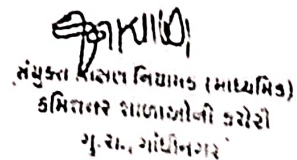 સંયુક્ત શિક્ષણ નિયામક (માધ્યમિક)
કમિશનર શાળાઓની કચેરી
ગુ.રા., ગાંધીનગર